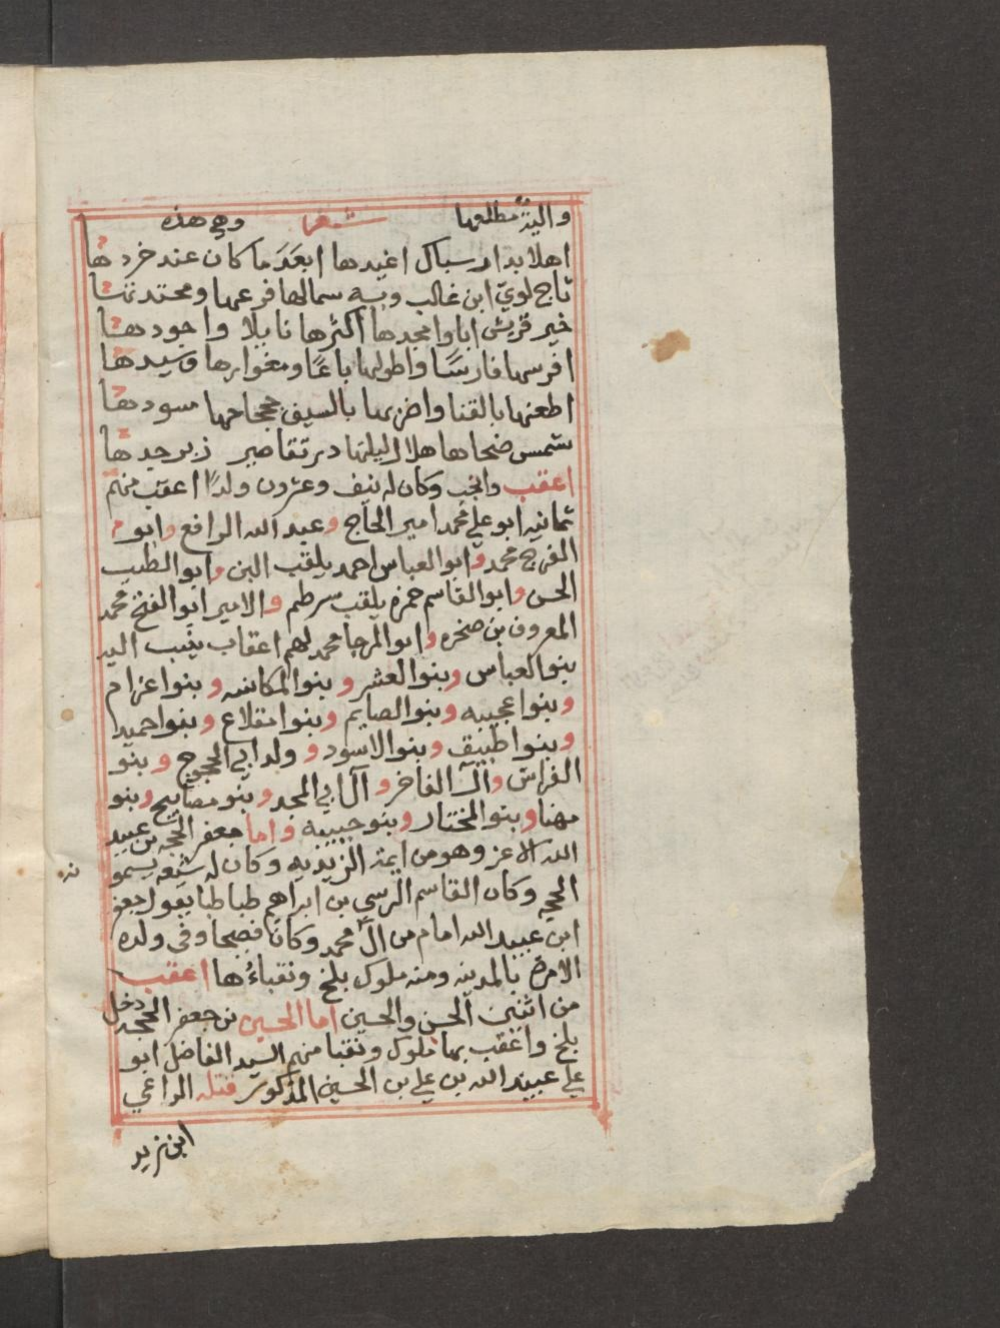 والية مطلعها شعر وهي هذه
اهلا بدار سباك اغيدها ابعد ما كان عند خردها
تاج لوي ابن غالب وبه سمالها فرعها ومحتد
خير قريش ابا وامجدها اكثرها نايلا واجودها
افرسها فارسًا واطولها باعًا ومغوارها وسيدها
اطعنها بالقنا واضربها بالسيف جحجاحها مسودها
شمس ضحاها هلال ليلتها در تقاصير زبرجدها
اعقب وانجب وكان له نيف وعشرون ولدًا اعقب منهم
ثمانيه ابو علي محمد امير الحاج وعبد الله الرافع وابو
الفرج محمد وابو العباس احمد يلقب البن وابو الطيب
الحسن وابو القاسم حمزه يلقب سرطم والامير ابو الفتح محمد
المعروف بن صخره وابو المرجا محمد لهم اعقاب ينسب اليه
بنو العباس وبنوا العشر وبنوا المكانسه وبنوا عزام
وبنوا عجيبه وبنوا الصايم وبنوا مقلاع وبنوا حميد
وبنوا طبيق وبنوا الاسود و ولد ابي الحجوج وبنو
الفراش وآل الفاخر و آل ابي المجد وبنو مصابيح وبنو
مهنا وبنو المختار وبنو حبيبه واما جعفر الحجه بن عبيد
الله الاعز وهو من ايمة الزيديه وكان له شيعه يسمو
الحجه وكان القاسم الرسي بن ابراهيم طباطبا يقول جعفر
ابن عبيد الله امام من آل محمد وكان فصيحا وفى ولده
الامرة بالمدينه ومنه ملوك بلخ ونقباءُها اعقب
من اثنين الحسن والحسين اما الحسين بن جعفر الحجه دخل
بلخ واعقب بها ملوك ونقبا منهم السيد الفاضل ابو
علي عبيد الله بن علي بن الحسين المذكور قتله الراعي
ابن زيد